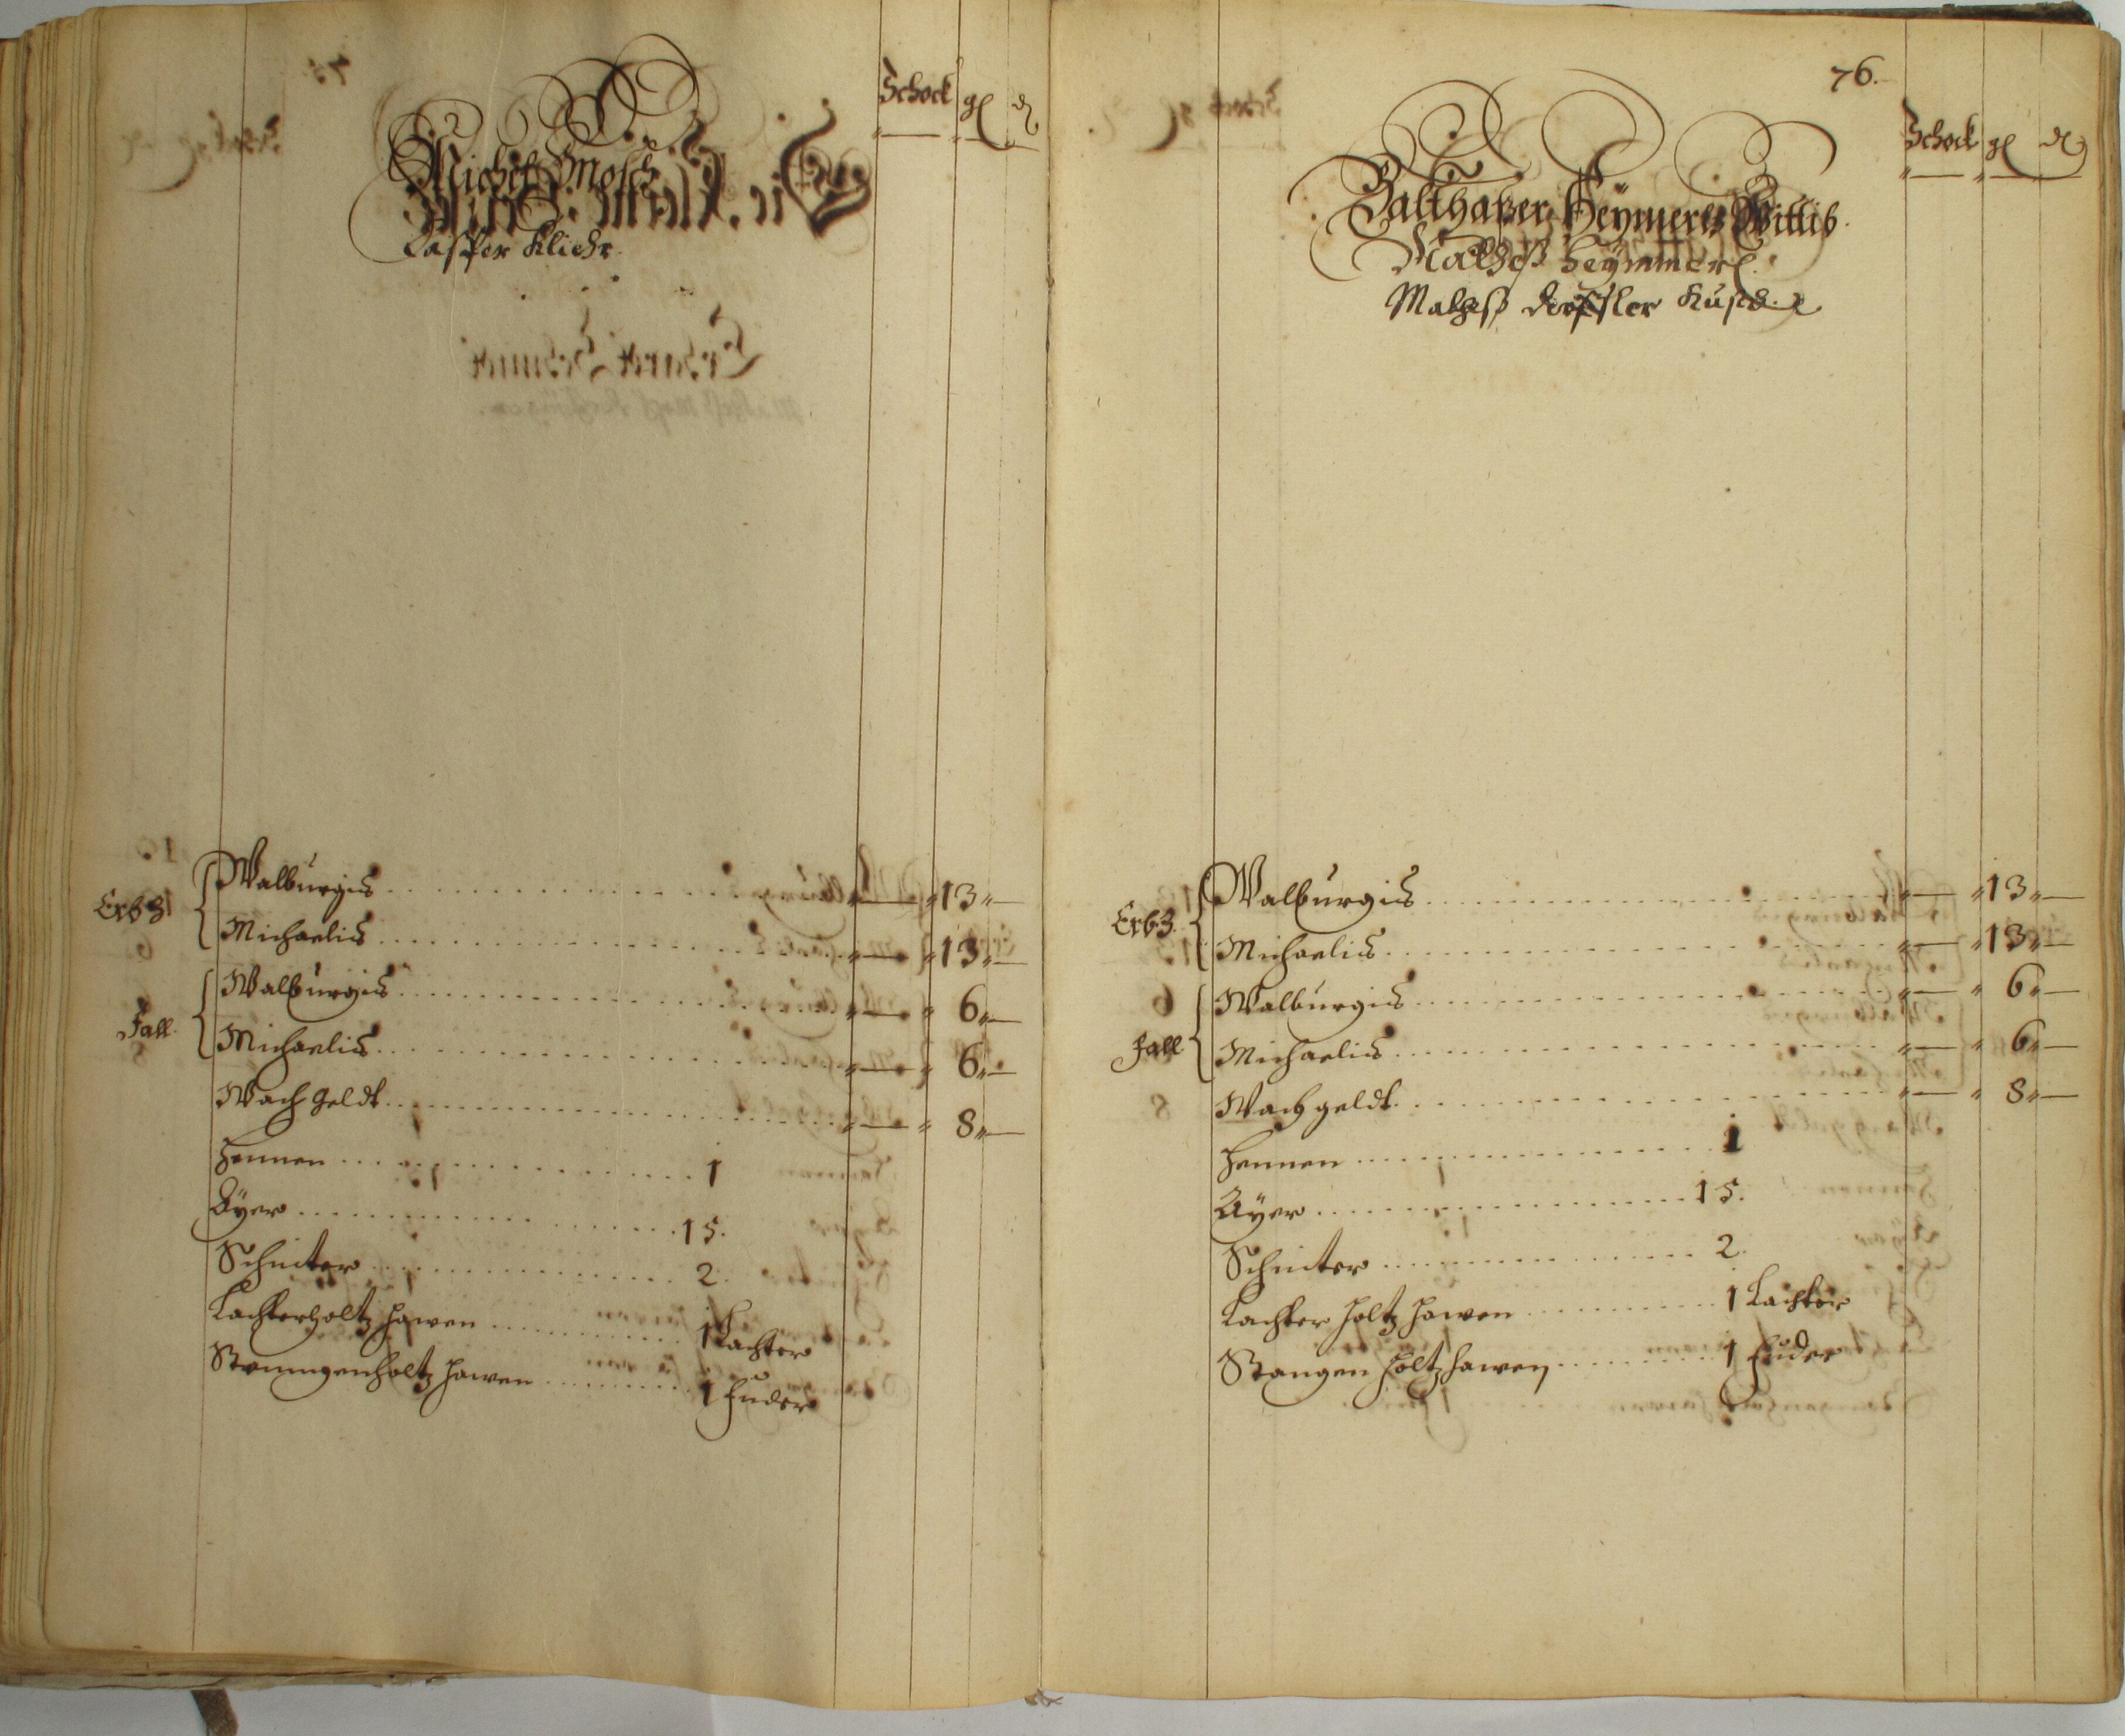 Schock gl d
Michel Mosch
Casper Kliehr
Erbz
Walburgis ........ "— "13"—
Michaelis ........ "— "13"—
Fall.
Walburgis ........ "— " 6"—
Michaelis ........ "— " 6"—
Wach geldt ........ "— " 8"—
Hennen ........ 1
Ayer ........ 15.
Schnitter ........ 2.
Lachterholtz hawen ........ 1 Lachter
Stanngenholtz hawen ........ 1 Fuder
76.
Schock gl d
Balthaßer Heymerls Wittib.
Matheß Heymmerl.
Matheß
Erbz.
Walburgis ........ "— "13"—
Michaelis ........ "— "13"—
Fall
Walburgis ........ "— " 6"—
Michaelis ........ "— " 6"—
Wach geldt ........ "— " 8"—
Hennen ........ 1
Ayer ........ 15.
Schnitter ........ 2.
Lachter holtz hawen ........ 1 Lachter
Stangen holtz hawen ........ 1 Fuder